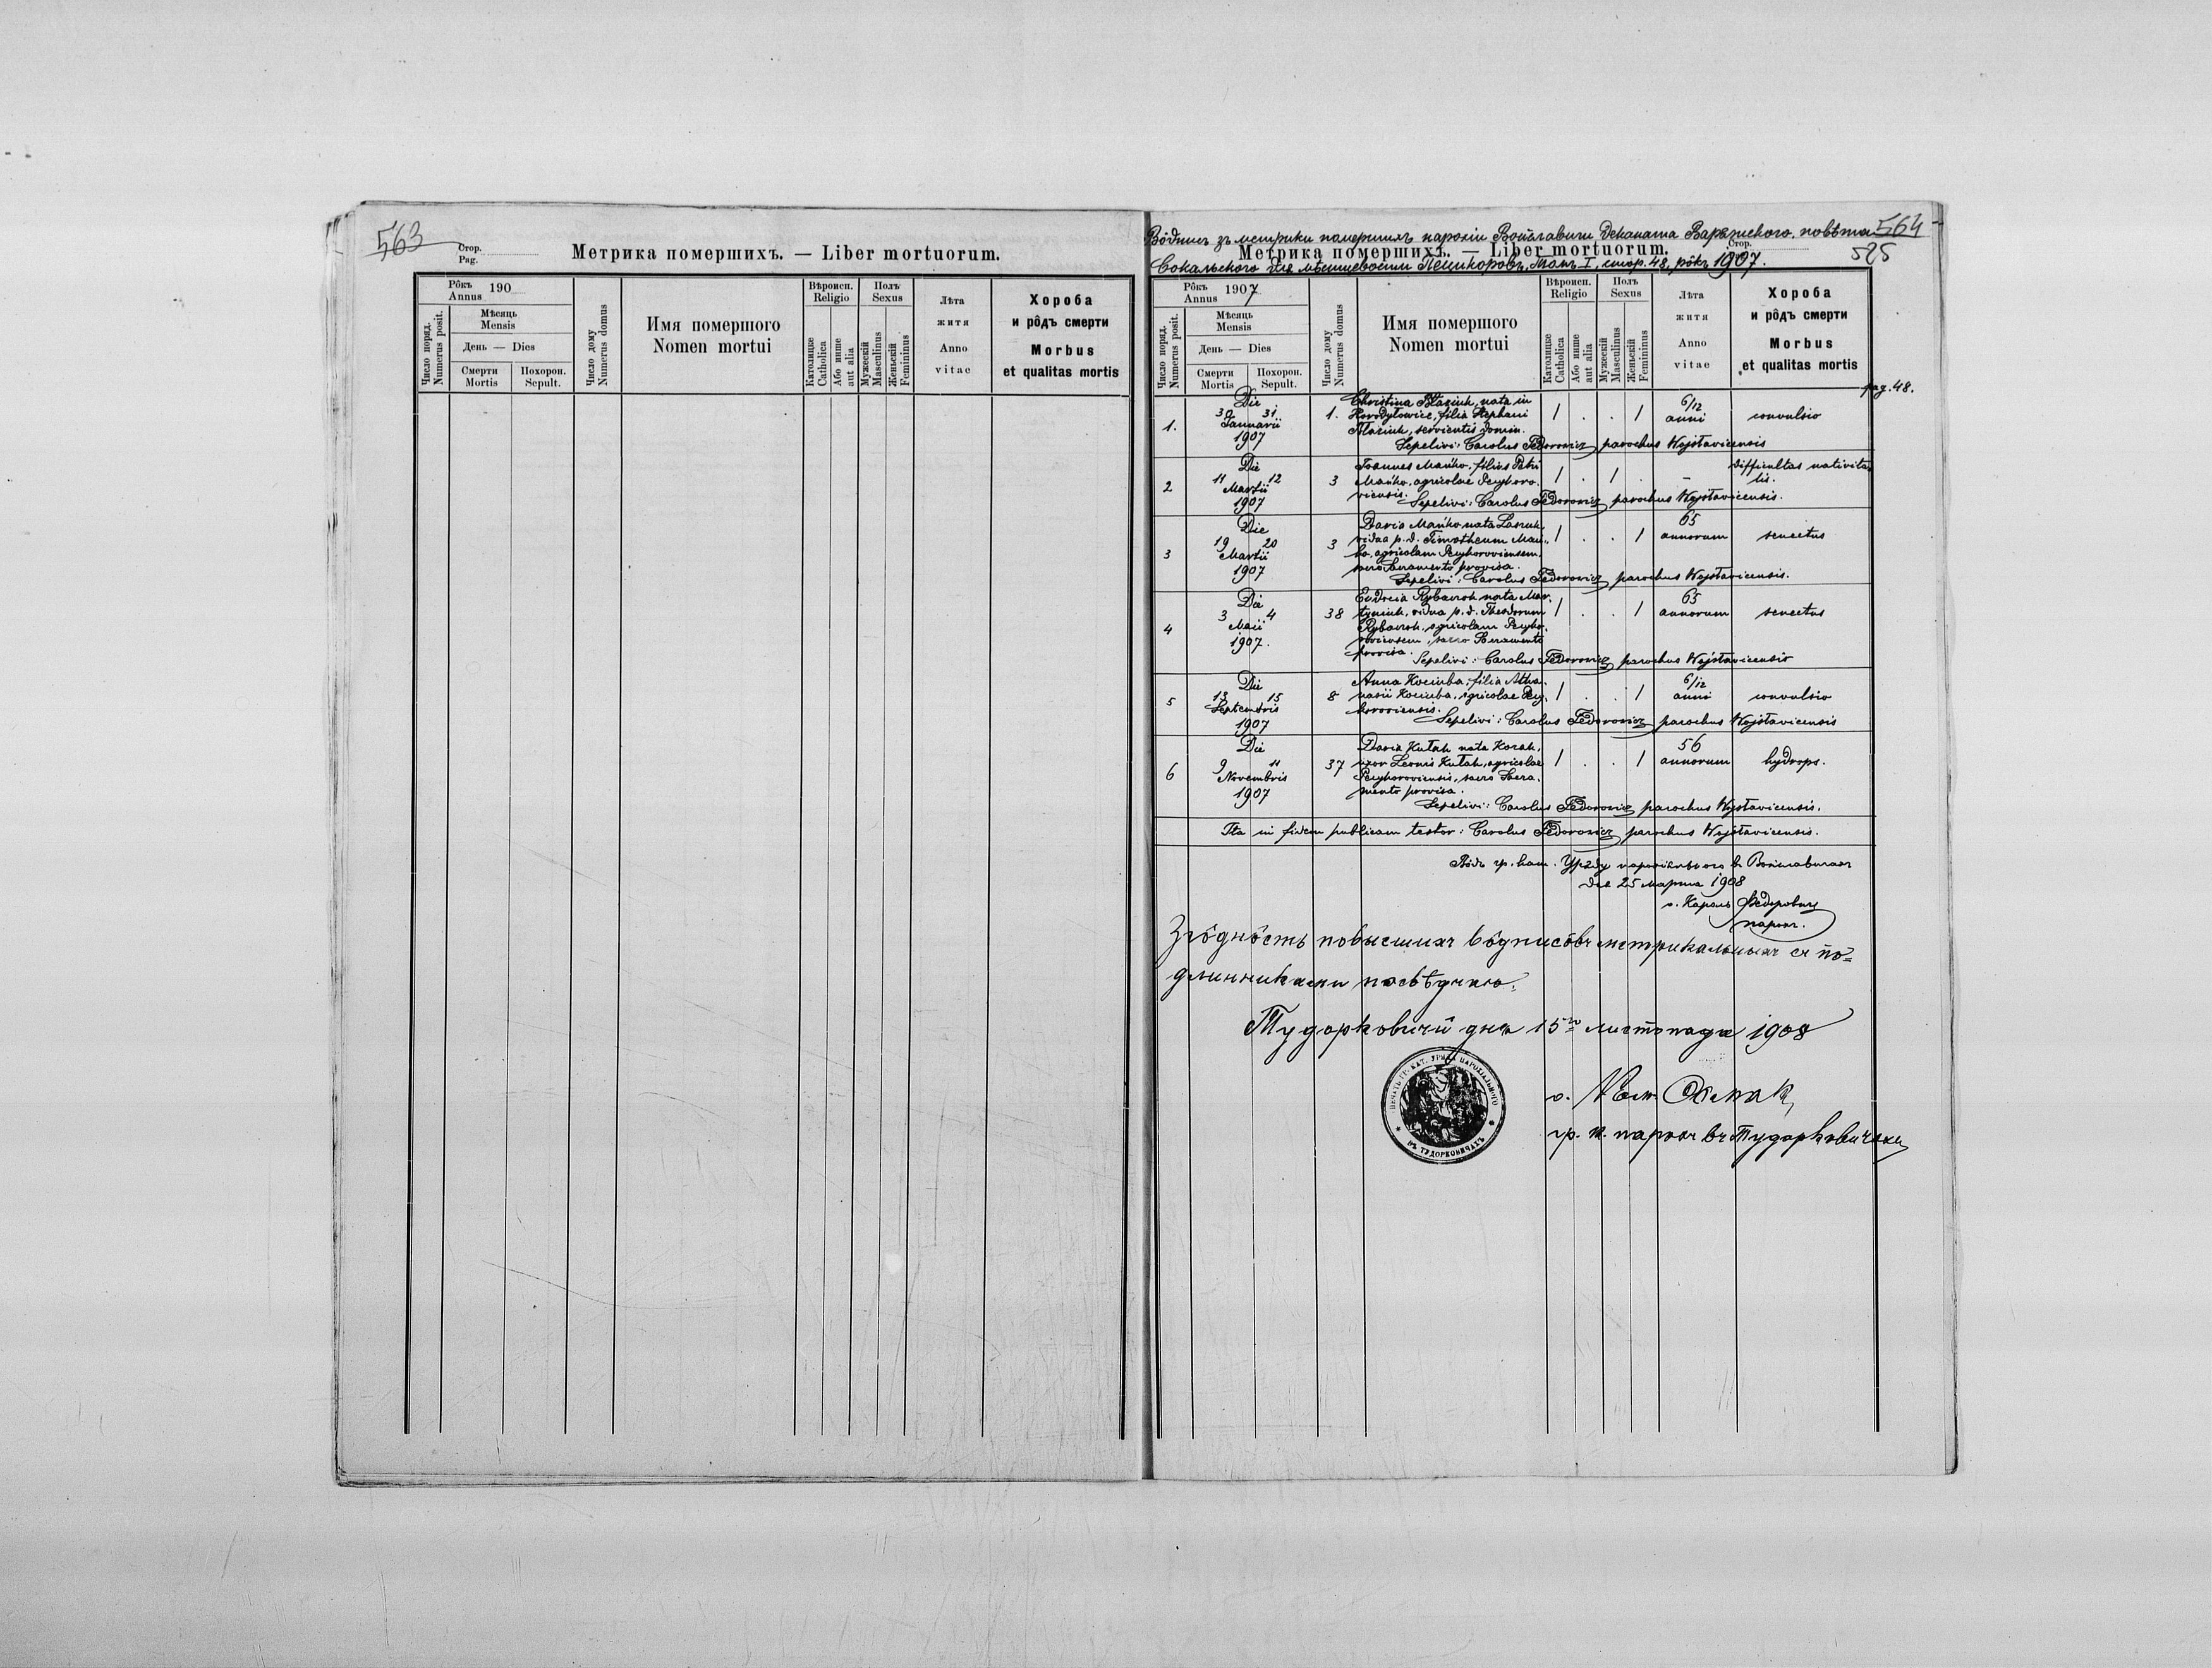 563
Стор.
Pag.
Метрика помершихъ. — Liber mortuorum.
Рôкъ 190
Annus
Число поряд.
Numerus posit.
Мѣсяць
Mensis
День — Dies
Смерти
Mortis
Похорон.
Sepult.
Число дому
Numerus domus
Имя помершого
Nomen mortui
Вѣроисп.
Religio
Католицке
Catholica
Або инше
aut alia
Полъ
Sexus
Мужескій
Masculinus
Женьскій
Femininus
Лѣта
житя
Anno
vitae
Хороба
и рôдъ смерти
Morbus
et qualitas mortis
Вôдпись зъ метрики помершихъ парохіи Войславичи деканата Варяжского, повѣта 564
Метрика помершихъ. — Liber mortuorum.
Стор.
525
Сокальского для мѣстцевости Пешкоровъ, Томъ I, стор. 48, рôкъ 1907.
Рôкъ 1907
Annus
Число поряд.
Numerus posit.
Мѣсяць
Mensis
День — Dies
Смерти
Mortis
Похорон.
Sepult.
Число дому
Numerus domus
Имя помершого
Nomen mortui
Вѣроисп.
Religio
Католицке
Catholica
Або инше
aut alia
Полъ
Sexus
Мужескій
Masculinus
Женьскій
Femininus
Лѣта
житя
Anno
vitae
Хороба
и рôдъ смерти
Morbus
et qualitas mortis
pag. 48.
1. Die 30 31 Januarii 1907 1. Christina Błaziuk, nata in
Horodyłowice, filia Stephani
Błaziuk, servientis domin. 1 . . 1 6/12 anni convulsio
Sepelivi: Carolus Fedorowicz parochus Wojsławicensis
2 Die 11 12 Martii 1907 3 Joannes Mańko, filius Petri
Mańko, agricolae Peryhoro-
viensis. 1 . 1 . - difficultas nativita-
tis.
Sepelivi: Carolus Fedorowicz parochus Wojsławicensis.
3 Die 19 20 Martii 1907 3 Daria Mańko nata
vidua p. d. Timotheum Mań-
ko, agricolam
sacro Sacramento provisa. 1 . . 1 65 annorum senectus
Sepelivi: Carolus Fedorowicz parochus Wojsławicensis.
4 Die 3 4 Maii 1907. 38 Eudocia nata Mar-
tyniuk, vidua p. d. Theodorum
agricolam
sacro Sacramento
provisa. 1 . . 1 65 annorum senectus
Sepelivi: Carolus Fedorowicz parochus Wojsławicensis
5 Die 13 15 Septembris 1907 8 Anna Kociuba, filia Atha-
nasii Kociuba, agricolae
1 . . 1 6/12 anni convulsio
Sepelivi: Carolus Fedorowicz parochus Wojsławicensis
6 Die 9 11 Novembris 1907 37 Daria Kułak nata Kozak,
uxor Leonis Kułak, agricolae
sacro Sacra-
mento provisa. 1 . . 1 56 annorum hydrops.
Sepelivi: Carolus Fedorowicz parochus Wojsławicensis.
Ita in fidem publicam testor: Carolus Fedorowicz parochus Wojsławicensis.
Вôдъ гр. кат. Уряду парохіяльного въ Войславичахъ
дня 25 марта 1908
о. Кароль Федоровичъ
парох.
Згôднôсть повысшихъ вôдписôвъ метрикальныхъ съ пô-
длинниками посвѣдчаю.
Тудорковичѣ дня 15го листопада 1908
ПЕЧАТЬ ГР. КАТ. УРЯДА ПАРОХІЯЛЬНОГО
ВЪ ТУДОРКОВИЧАХЪ
о.
гр. к. парох въ Тудорковичахъ